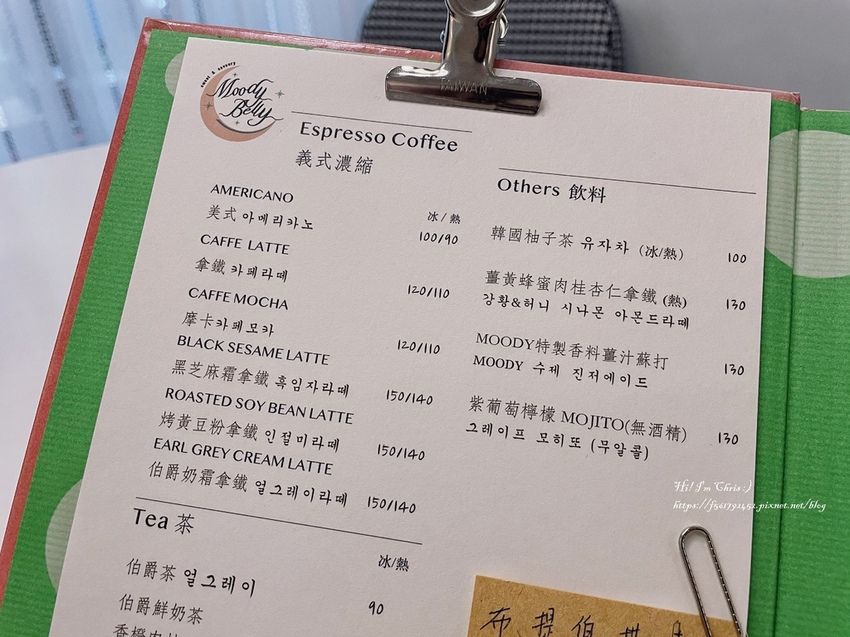 Moody Belly
Espresso Coffee
義式濃縮
冰/熱
AMERICANO
美式 아메리카노 100/90
CAFFE LATTE
拿鐵 카페라떼 120/110
CAFFE MOCHA
摩卡 카페모카 120/110
BLACK SESAME LATTE
黑芝麻霜拿鐵 흑임자라떼 150/140
ROASTED SOY BEAN LATTE
烤黃豆粉拿鐵 인절미라떼 150/140
EARL GREY CREAM LATTE
伯爵奶霜拿鐵 얼그레이라떼 150/140
Tea 茶
冰/熱
伯爵茶 얼그레이 90
伯爵鮮奶茶
Others 飲料
韓國柚子茶 유자차 (冰/熱) 100
薑黃蜂蜜肉桂杏仁拿鐵 (熱) 130
강황&허니 시나몬 아몬드라떼
MOODY特製香料薑汁蘇打 130
MOODY 수제 진저에이드
紫葡萄檸檬 MOJITO(無酒精) 130
그레이프 모히또 (무알콜)
TAIWAN
Hi! I'm Chris :)
https://f561792452.pixnet.net/blog
布提伯